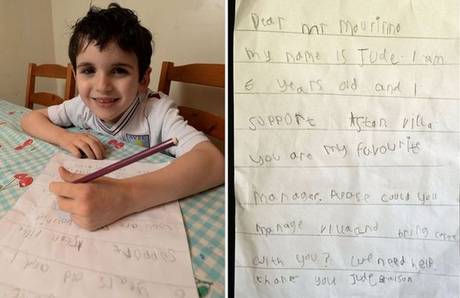 Dear mr Mourinno
my name is Jude. I am
6 years old and I
support Aston villa
you are my favourite
manager. Please could you
manage villa and bring
with you? We need help.
thank you Jude